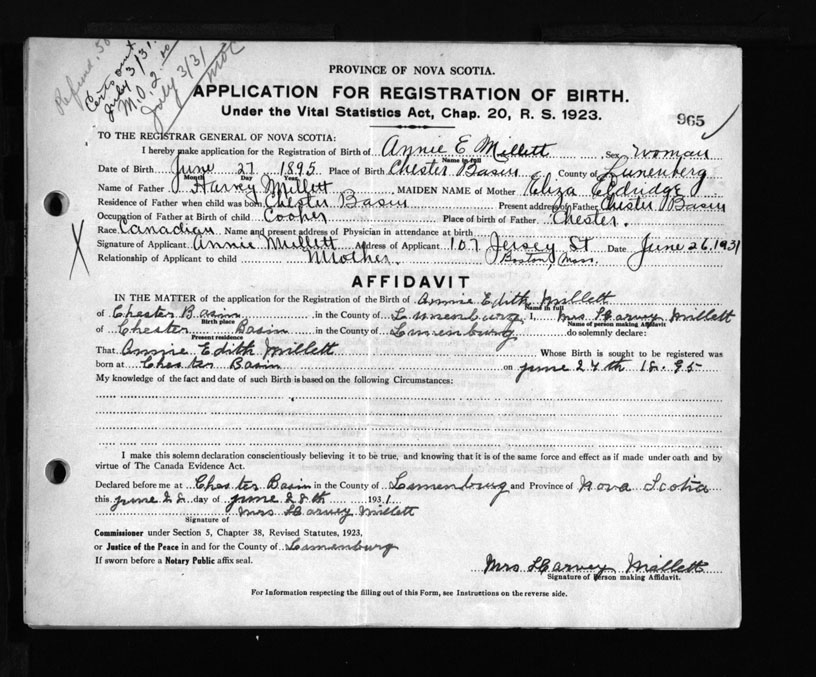 Refund. 50
Certs out
July 3/31.
M.O. 2.00
July 3/31
PROVINCE OF NOVA SCOTIA.
APPLICATION FOR REGISTRATION OF BIRTH.
Under the Vital Statistics Act, Chap. 20, R. S. 1923.
965
TO THE REGISTRAR GENERAL OF NOVA SCOTIA:
I hereby make application for the Registration of Birth of Annie E Millett Sex woman
Name in full
Date of Birth June 27 1895 Place of Birth Chester Basin County of Lunenberg
Month Day Year
Name of Father Harvey Millett MAIDEN NAME of Mother Eliza Eldridge
Residence of Father when child was born Chester Basin Present address of Father Chester Basin
Occupation of Father at Birth of child Cooper Place of birth of Father Chester.
Race Canadian Name and present address of Physician in attendance at birth
Signature of Applicant Annie Millett Address of Applicant 107 Jersey St Date June 26 1931
Relationship of Applicant to child Mother. Boston, Mass.
X
AFFIDAVIT
IN THE MATTER of the application for the Registration of the Birth of Annie Edith Millett
Name in full
of Chester Basin in the County of Lunenburg I, Mrs Harvey Millett
Birth place Name of person making Affidavit
of Chester Basin in the County of Lunenburg do solemnly declare:
Present residence
That Annie Edith Millett Whose Birth is sought to be registered was
born at Chester Basin on june 27th 18.95
My knowledge of the fact and date of such Birth is based on the following Circumstances:
I make this solemn declaration conscientiously believing it to be true, and knowing that it is of the same force and effect as if made under oath and by
virtue of The Canada Evidence Act.
Declared before me at Chester Basin in the County of Lunenburg and Province of Nova Scotia
this june 28 day of june 28th 1931
Mrs Harvey Millett
Signature of
Commissioner under Section 5, Chapter 38, Revised Statutes, 1923,
or Justice of the Peace in and for the County of Lunenburg
If sworn before a Notary Public affix seal.
Mrs Harvey Millett
Signature of Person making Affidavit.
For Information respecting the filling out of this Form, see Instructions on the reverse side.